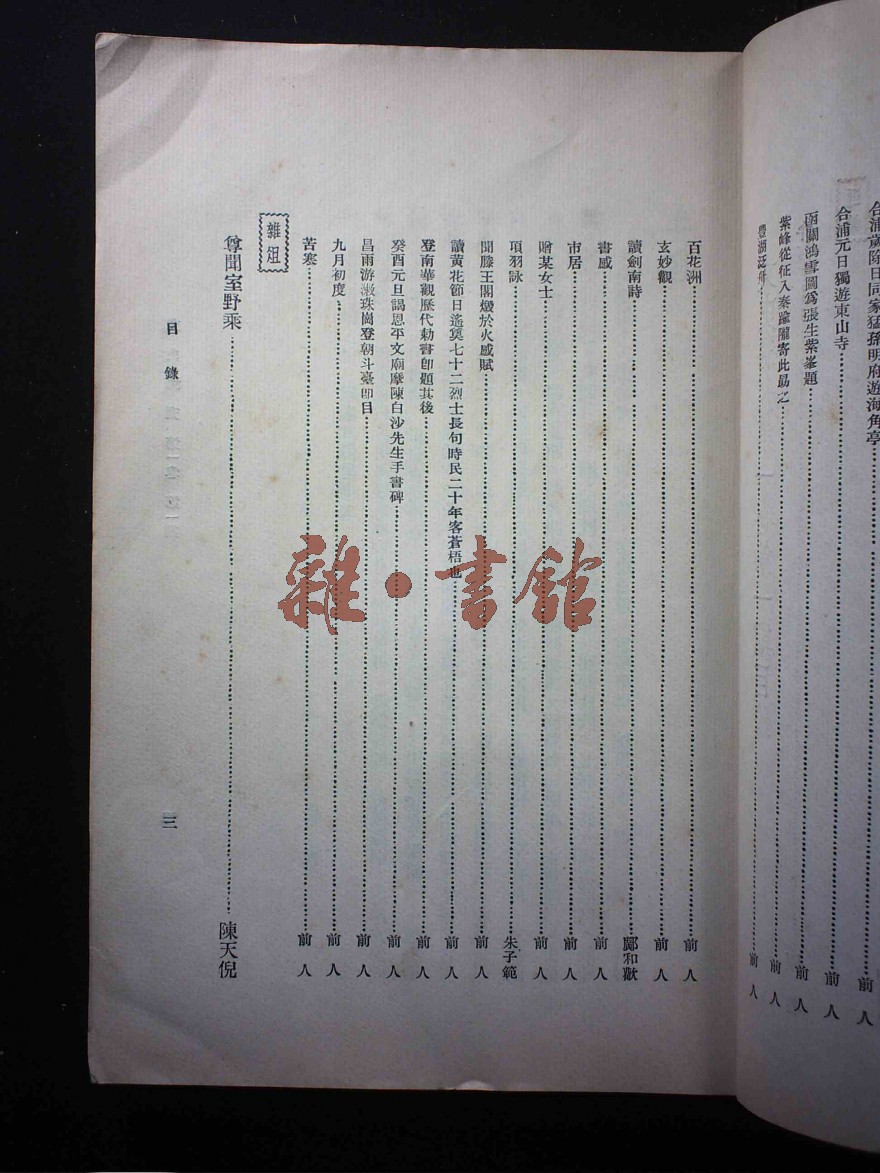 合浦歲除日同家猛孫明府遊海角亭 前人
合浦元日獨遊東山寺 前人
函關鴻雪圖爲張生紫峯題 前人
紫峰從征入秦踰隴寄此勗之 前人
豐湖泛舟 前人
百花洲 前人
玄妙觀 前人
讀劍南詩 鄺和歡
書感 前人
市居 前人
贈某女士 前人
項羽詠 朱子範
聞滕王閣燬於火感賦 前人
讀黃花節日遙奠七十二烈士長句時民二十年客蒼梧也 前人
登南華觀歷代勅書卽題其後 前人
癸酉元旦謁恩平文廟摩陳白沙先生手書碑 前人
昌雨游漱珠崗登朝斗臺卽目 前人
九月初度 前人
苦寒 前人
雜俎
尊聞室野乘 陳天倪
目錄
三
雜·書館